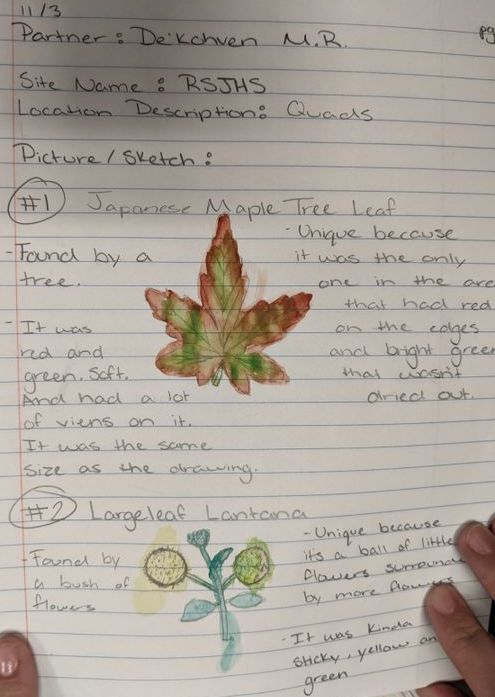 11/3
Partner: De'kchven M.R.
pg
Site Name: RSJHS
Location Description: Quads
Picture/Sketch:
#1 Japanese Maple Tree Leaf
- Found by a
tree.
- It was
red and
green. Soft.
And had a lot
of viens on it.
It was the same
size as the drawing.
- Unique because
it was the only
one in the are
that had red
on the edges
and bright green
that wasn't
dried out.
#2 Largeleaf Lantana
- Found by
a bush of
flowers
- Unique because
its a ball of little
flowers surround
by more flowers
- It was kinda
sticky, yellow an
green